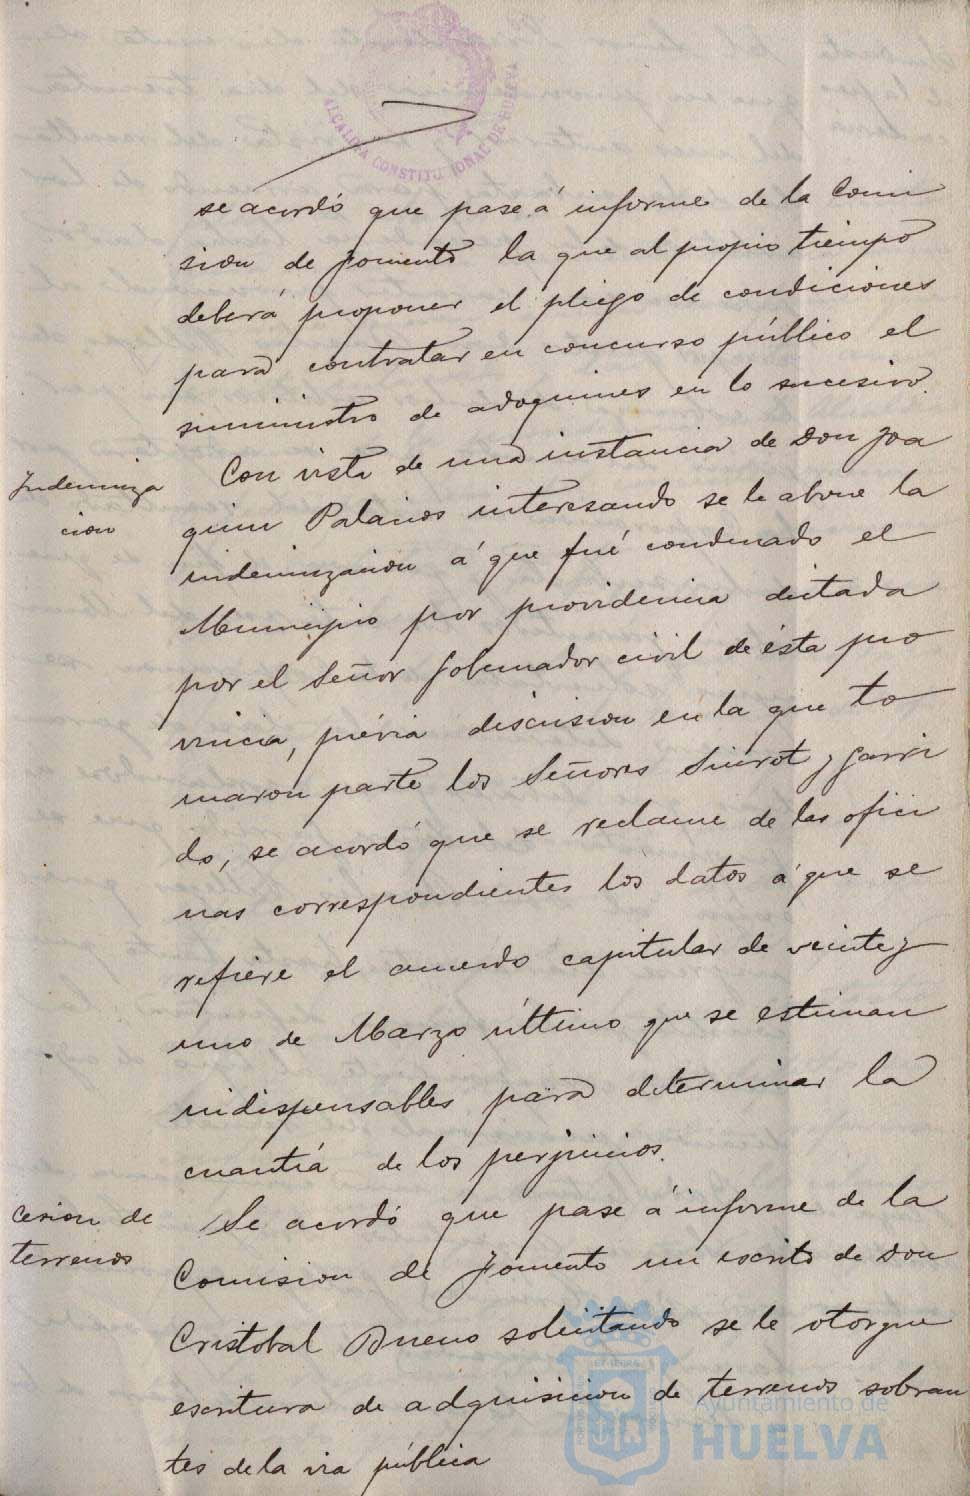 ALCALDIA CONSTITUCIONAL DE HUELVA
se acordó que pase á informe de la Comi
sion de Fomento la que al propio tiempo
deberá proponer el pliego de condiciones
para contratar en concurso público el
suministro de adoquines en lo sucesivo.
Indemniza
cion
Con vista de una instancia de Don Joa
quin Palacios interesando se le abone la
indemnizacion á que fué condenado el
Municipio por providencia dictada
por el Señor Gobernador civil de ésta pro
vincia, prévia discusion en la que to
maron parte los Señores Siurot y Garri
do, se acordó que se reclame de las ofici
nas correspondientes los datos á que se
refiere el acuerdo capitular de veinte y
uno de Marzo último que se estiman
indispensables para determinar la
cuantía de los perjuicios.
Cesion de
terrenos
Se acordó que pase á informe de la
Comision de Fomento un escrito de Don
Cristobal Bueno solicitando se le otorgue
escritura de adquisicion de terrenos sobran
tes de la via pública
Ayuntamiento de
HUELVA